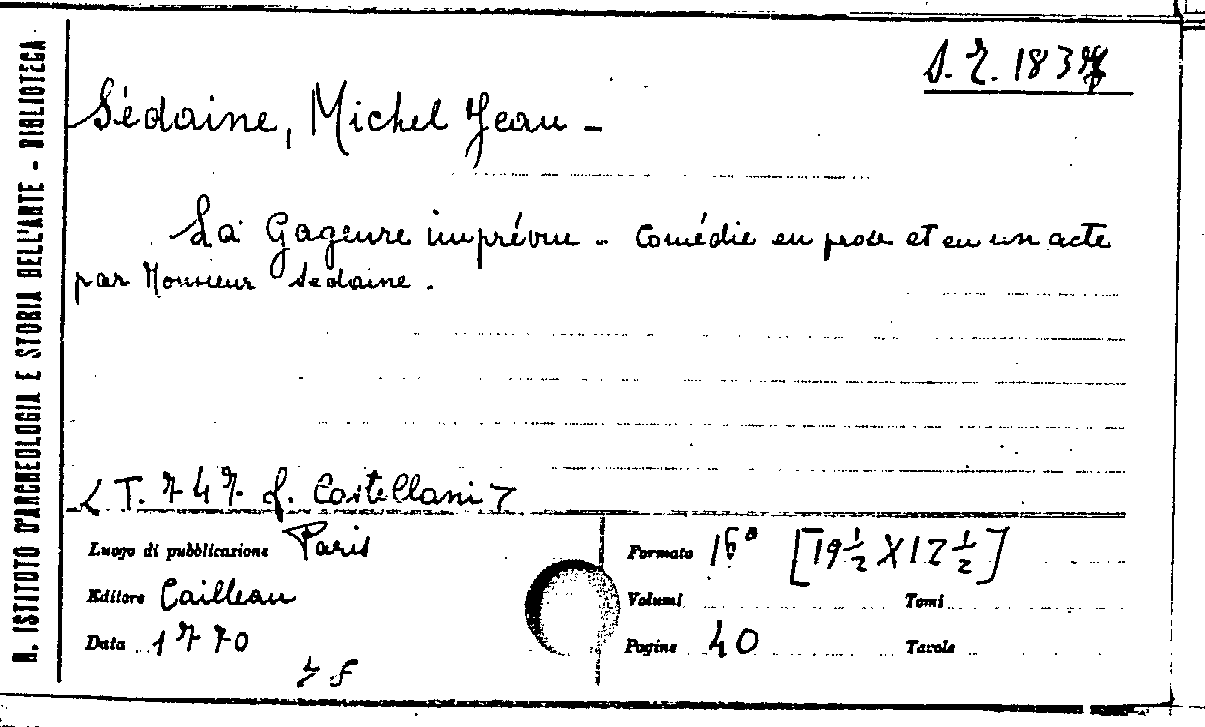 R. ISTITUTO D'ARCHEOLOGIA E STORIA DELL'ARTE - BIBLIOTECA
Sédaine, Michel Jean -
La Gageure imprévue - Comédie en prose et en un acte
par Monsieur Sedaine.
< T. 747 f. Castellani >
Luogo di pubblicazione Paris
Editore Cailleau
Data 1770
Formato 16° [19 ½ X 12 ½]
Volumi Tomi
Pagine 40 Tavole